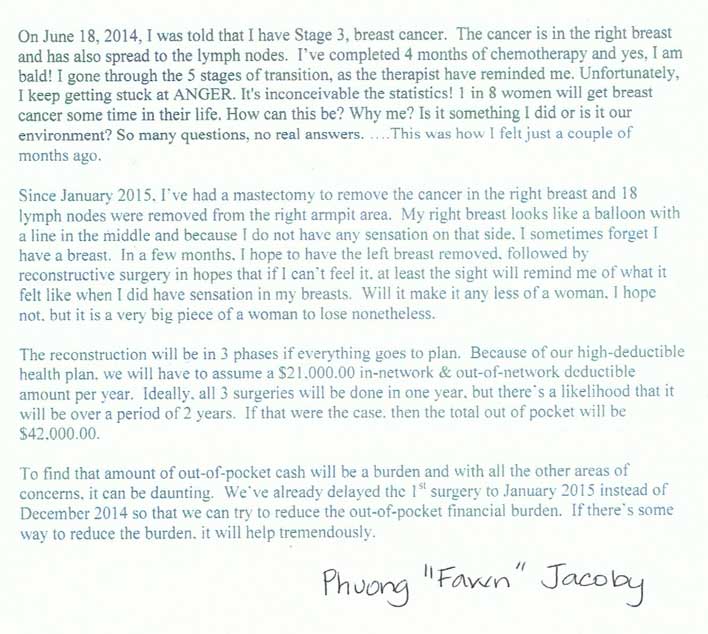 On June 18, 2014, I was told that I have Stage 3, breast cancer. The cancer is in the right breast
and has also spread to the lymph nodes. I've completed 4 months of chemotherapy and yes, I am
bald! I gone through the 5 stages of transition, as the therapist have reminded me. Unfortunately,
I keep getting stuck at ANGER. It's inconceivable the statistics! 1 in 8 women will get breast
cancer some time in their life. How can this be? Why me? Is it something I did or is it our
environment? So many questions, no real answers. ….This was how I felt just a couple of
months ago.

Since January 2015, I've had a mastectomy to remove the cancer in the right breast and 18
lymph nodes were removed from the right armpit area. My right breast looks like a balloon with
a line in the middle and because I do not have any sensation on that side, I sometimes forget I
have a breast. In a few months, I hope to have the left breast removed, followed by
reconstructive surgery in hopes that if I can't feel it, at least the sight will remind me of what it
felt like when I did have sensation in my breasts. Will it make it any less of a woman, I hope
not, but it is a very big piece of a woman to lose nonetheless.

The reconstruction will be in 3 phases if everything goes to plan. Because of our high-deductible
health plan, we will have to assume a $21,000.00 in-network & out-of-network deductible
amount per year. Ideally, all 3 surgeries will be done in one year, but there's a likelihood that it
will be over a period of 2 years. If that were the case, then the total out of pocket will be
$42,000.00.

To find that amount of out-of-pocket cash will be a burden and with all the other areas of
concerns, it can be daunting. We've already delayed the 1st surgery to January 2015 instead of
December 2014 so that we can try to reduce the out-of-pocket financial burden. If there's some
way to reduce the burden, it will help tremendously.

Phuong "Fawn" Jacoby